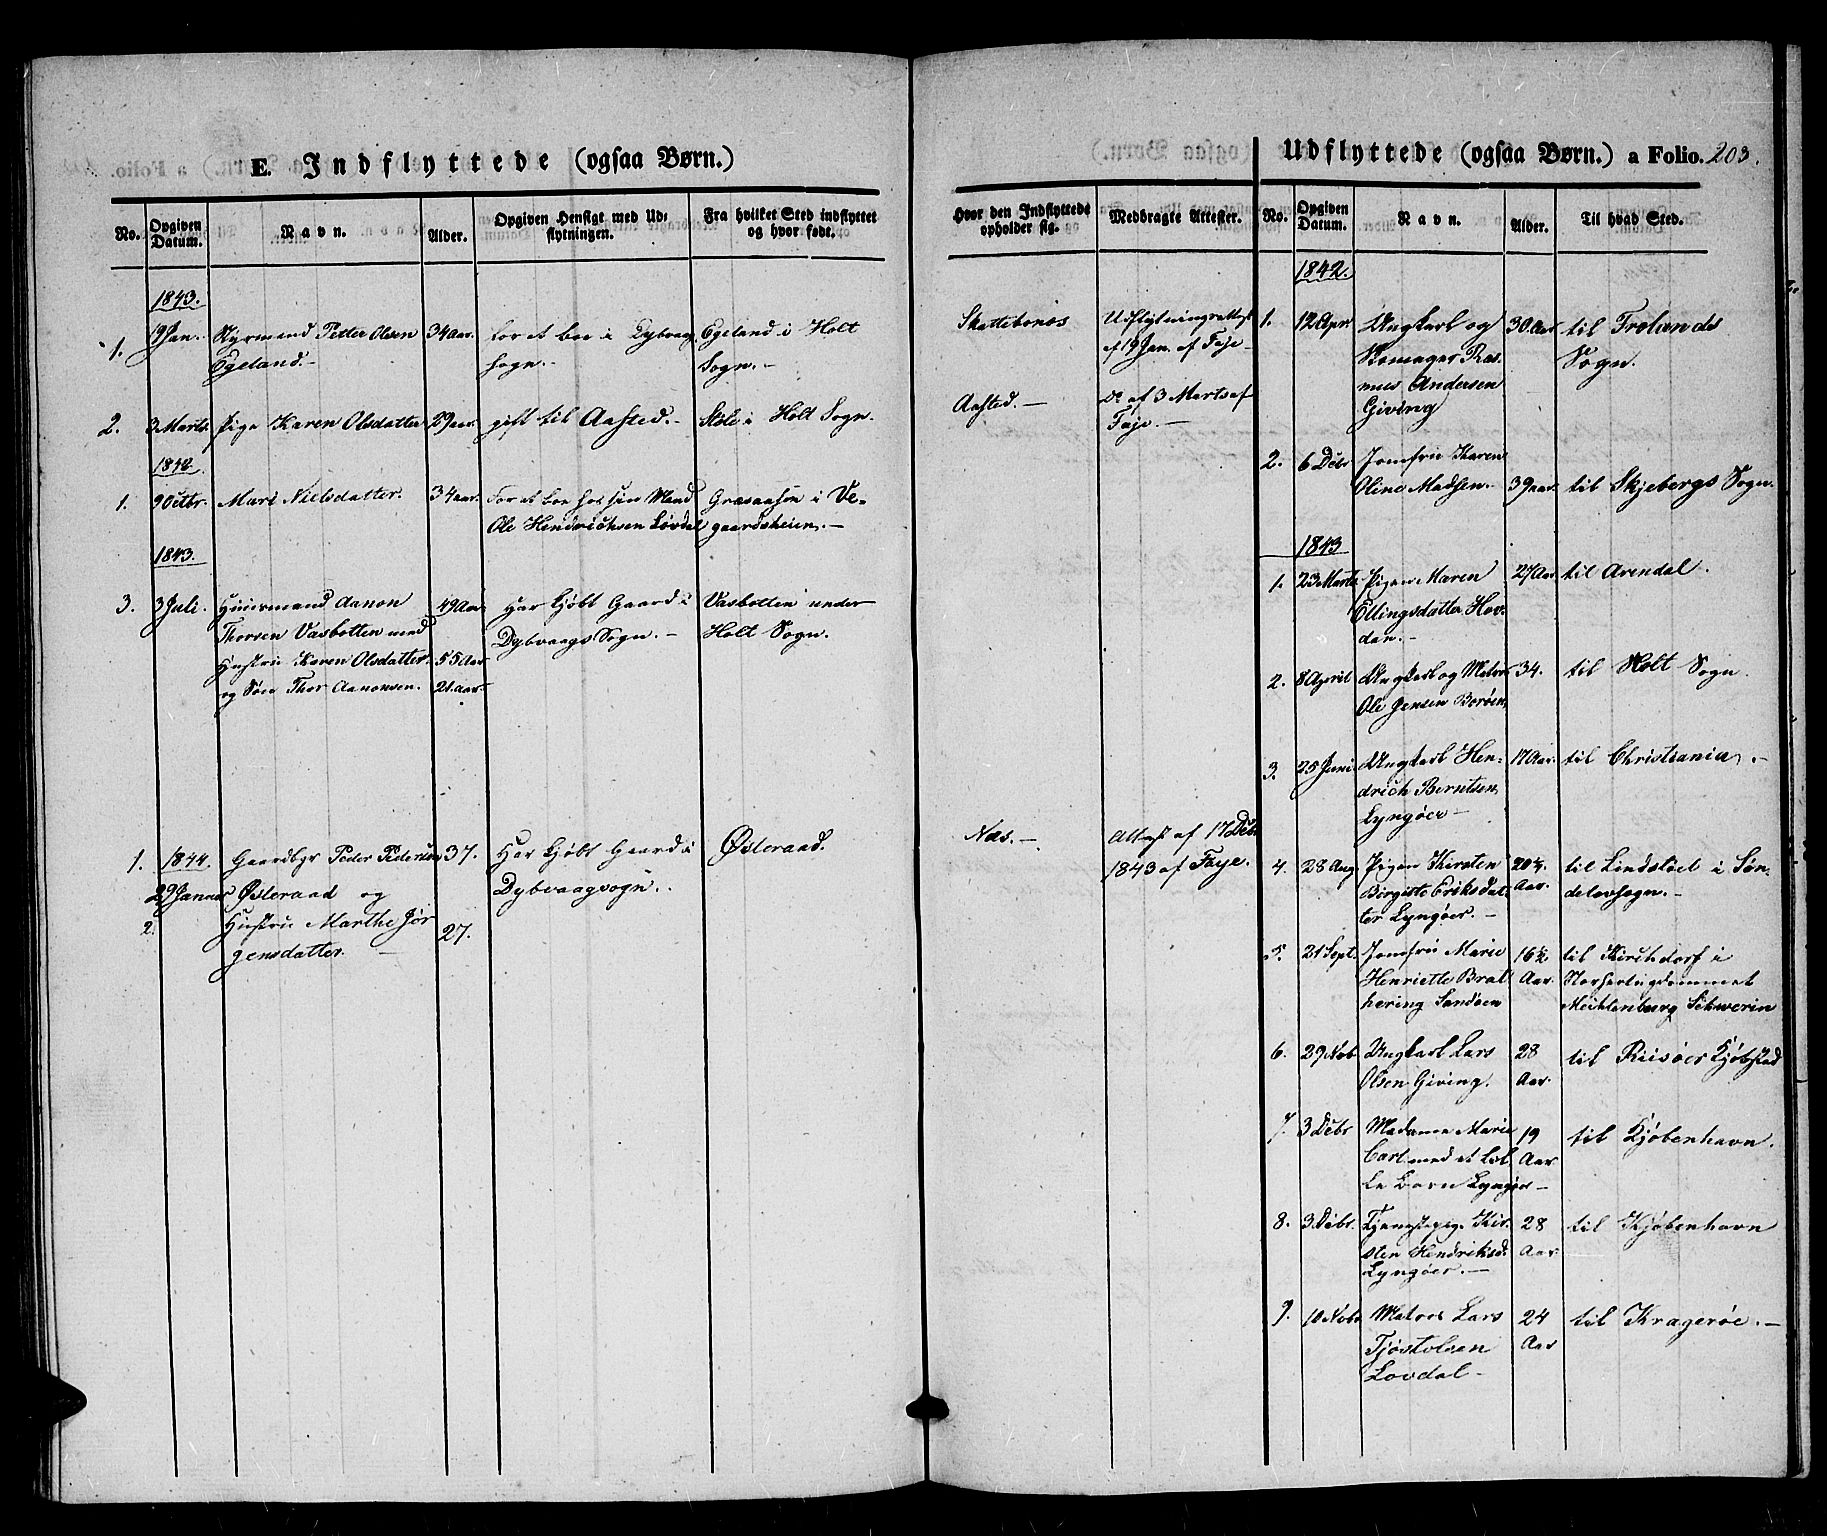 E. Indflyttede (ogsaa Børn.)
No.
Opgiven Datum.
Navn.
Alder.
Opgiven Hensigt med Udflytningen.
Fra hvilket Sted indflyttet og hvor født.
1843.
1. 19 Jan. Styrmand Petter Olsen 34 Aar. for at boe i Dybvaag Egeland i Holt
Egeland.- Sogn.- Sogn.-
2. 3 Marts Pige Karen Olsdatter 29 aar. gift til Aasted.- Støle i Holt Sogn.
1842.
1. 9 Octbr. Mari Nielsdatter. 34 aar. For at boe hos sin Mand Græsaasen i Ve-
Ole Hendrichsen Løvdal gaardsheien.-
1843.
3. 3 Juli. Huusmand Aanon 49 Aar Har kjøbt Gaard i Vasbotten under
Thorsen Vasbotten med Dybvaags Sogn.- Holt Sogn.
Hustru Karen Olsdatter 55 Aar
og Søn Thor Aanonsen. 21 aar.
1. 1844. Gaardbgr Peder Pedersen 37. Har kjøbt Gaard i Østeraad.
29 Januar Østeraad og Dybvaagsogn.
2. Hustru Marthe Jør
gensdatter.- 27.
Hvor den Indflyttede opholder sig.
Medbragte Attester.
Skattebonæs Udflytningsattest
af 19 Jan. af Faje-
Aasted.- Do af 3 Marts af
Faje.-
Næs.- Attest af 17 Debr
1843 af Faye.
Udflyttede (ogsaa Børn.) a Folio. 203.
No.
Opgiven Datum.
Navn.
Alder.
Til hvad Sted.
1842.
1. 12 Apr. Ungkarl og 30 Aar til Frolands
Ras- Sogn.
mus Andersen
Giving
2. 6 Debr Jomfru Karen
Oline Madsen. 39 aar. til Skjebergs Sogn.
1843
1. 23 Marts Pigen Maren 27 Aar. til Arendal.
Ellingsdatter Hov-
dan.-
2. 8 April Ungkarl og Matros 34. til Holt Sogn.
Ole Jensen Borøen,
3. 25 Juni. Ungkarl Hen- 17 Aar. til Christiania.-
drich Berntsen,
Lyngøer-
4. 28 Aug Pigen Kirsten 20½ til Lindstøel i Søn-
Birgitte Eriksdat- Aar. deløvsogn.-
ter Lyngøer.-
5. 21 Sept. Jomfru Marie 16½ til Kirchdorf i
Henriette Brat Aar. Storhertugdømmet
hering Sandøen Mechlenburg Schwerin
6. 29 Nob. Ungkarl Lars 28 til Riisøer Kjøbstad
Olsen Giving. Aar.
7. 3 Debr Madame Marie 19 til Kjøbenhavn.
Carl med et lil Aar.
le Barn Lyngøer-
8. 3 Debr. Tjenestepig. Kir- 28 til Kjøbenhavn
sten Hendriksd. Aar
Lyngøer.-
9. 10 Nobr Matros Lars 24 til Kragerøe.-
Tjøstolsen Aar
Lovdal-